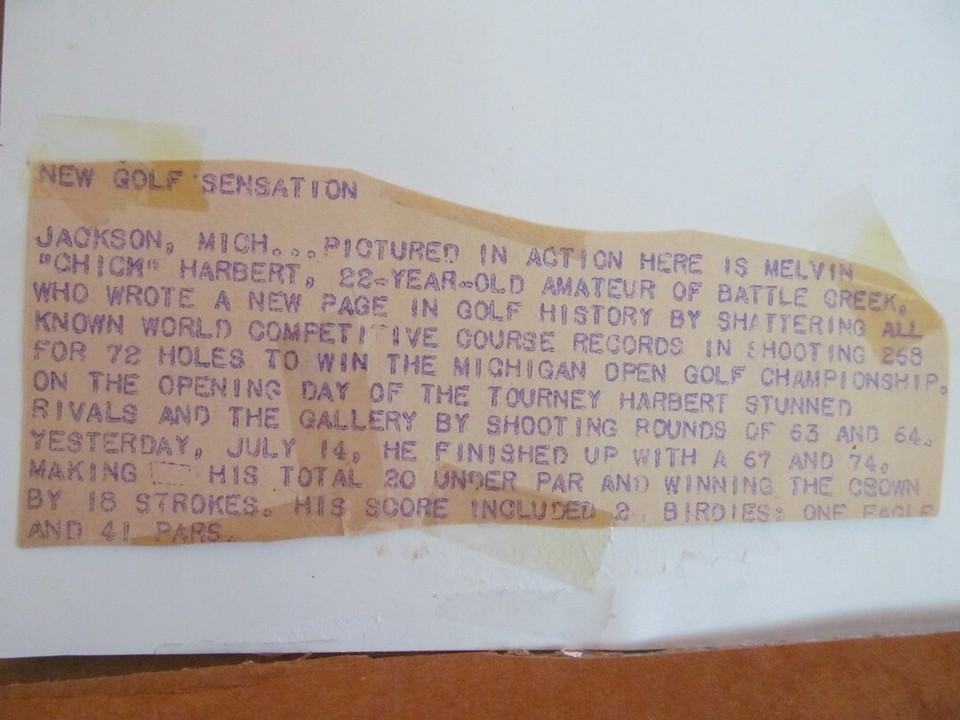 NEW GOLF SENSATION
JACKSON, MICH...PICTURED IN ACTION HERE IS MELVIN
"CHICK" HARBERT, 22-YEAR-OLD AMATEUR OF BATTLE CREEK,
WHO WROTE A NEW PAGE IN GOLF HISTORY BY SHATTERING ALL
KNOWN WORLD COMPETITIVE COURSE RECORDS IN SHOOTING 268
FOR 72 HOLES TO WIN THE MICHIGAN OPEN GOLF CHAMPIONSHIP.
ON THE OPENING DAY OF THE TOURNEY HARBERT STUNNED
RIVALS AND THE GALLERY BY SHOOTING ROUNDS OF 63 AND 64.
YESTERDAY, JULY 14, HE FINISHED UP WITH A 67 AND 74,
MAKING HIS TOTAL 20 UNDER PAR AND WINNING THE CROWN
BY 18 STROKES. HIS SCORE INCLUDED BIRDIES: ONE EAGLE
AND 41 PARS.